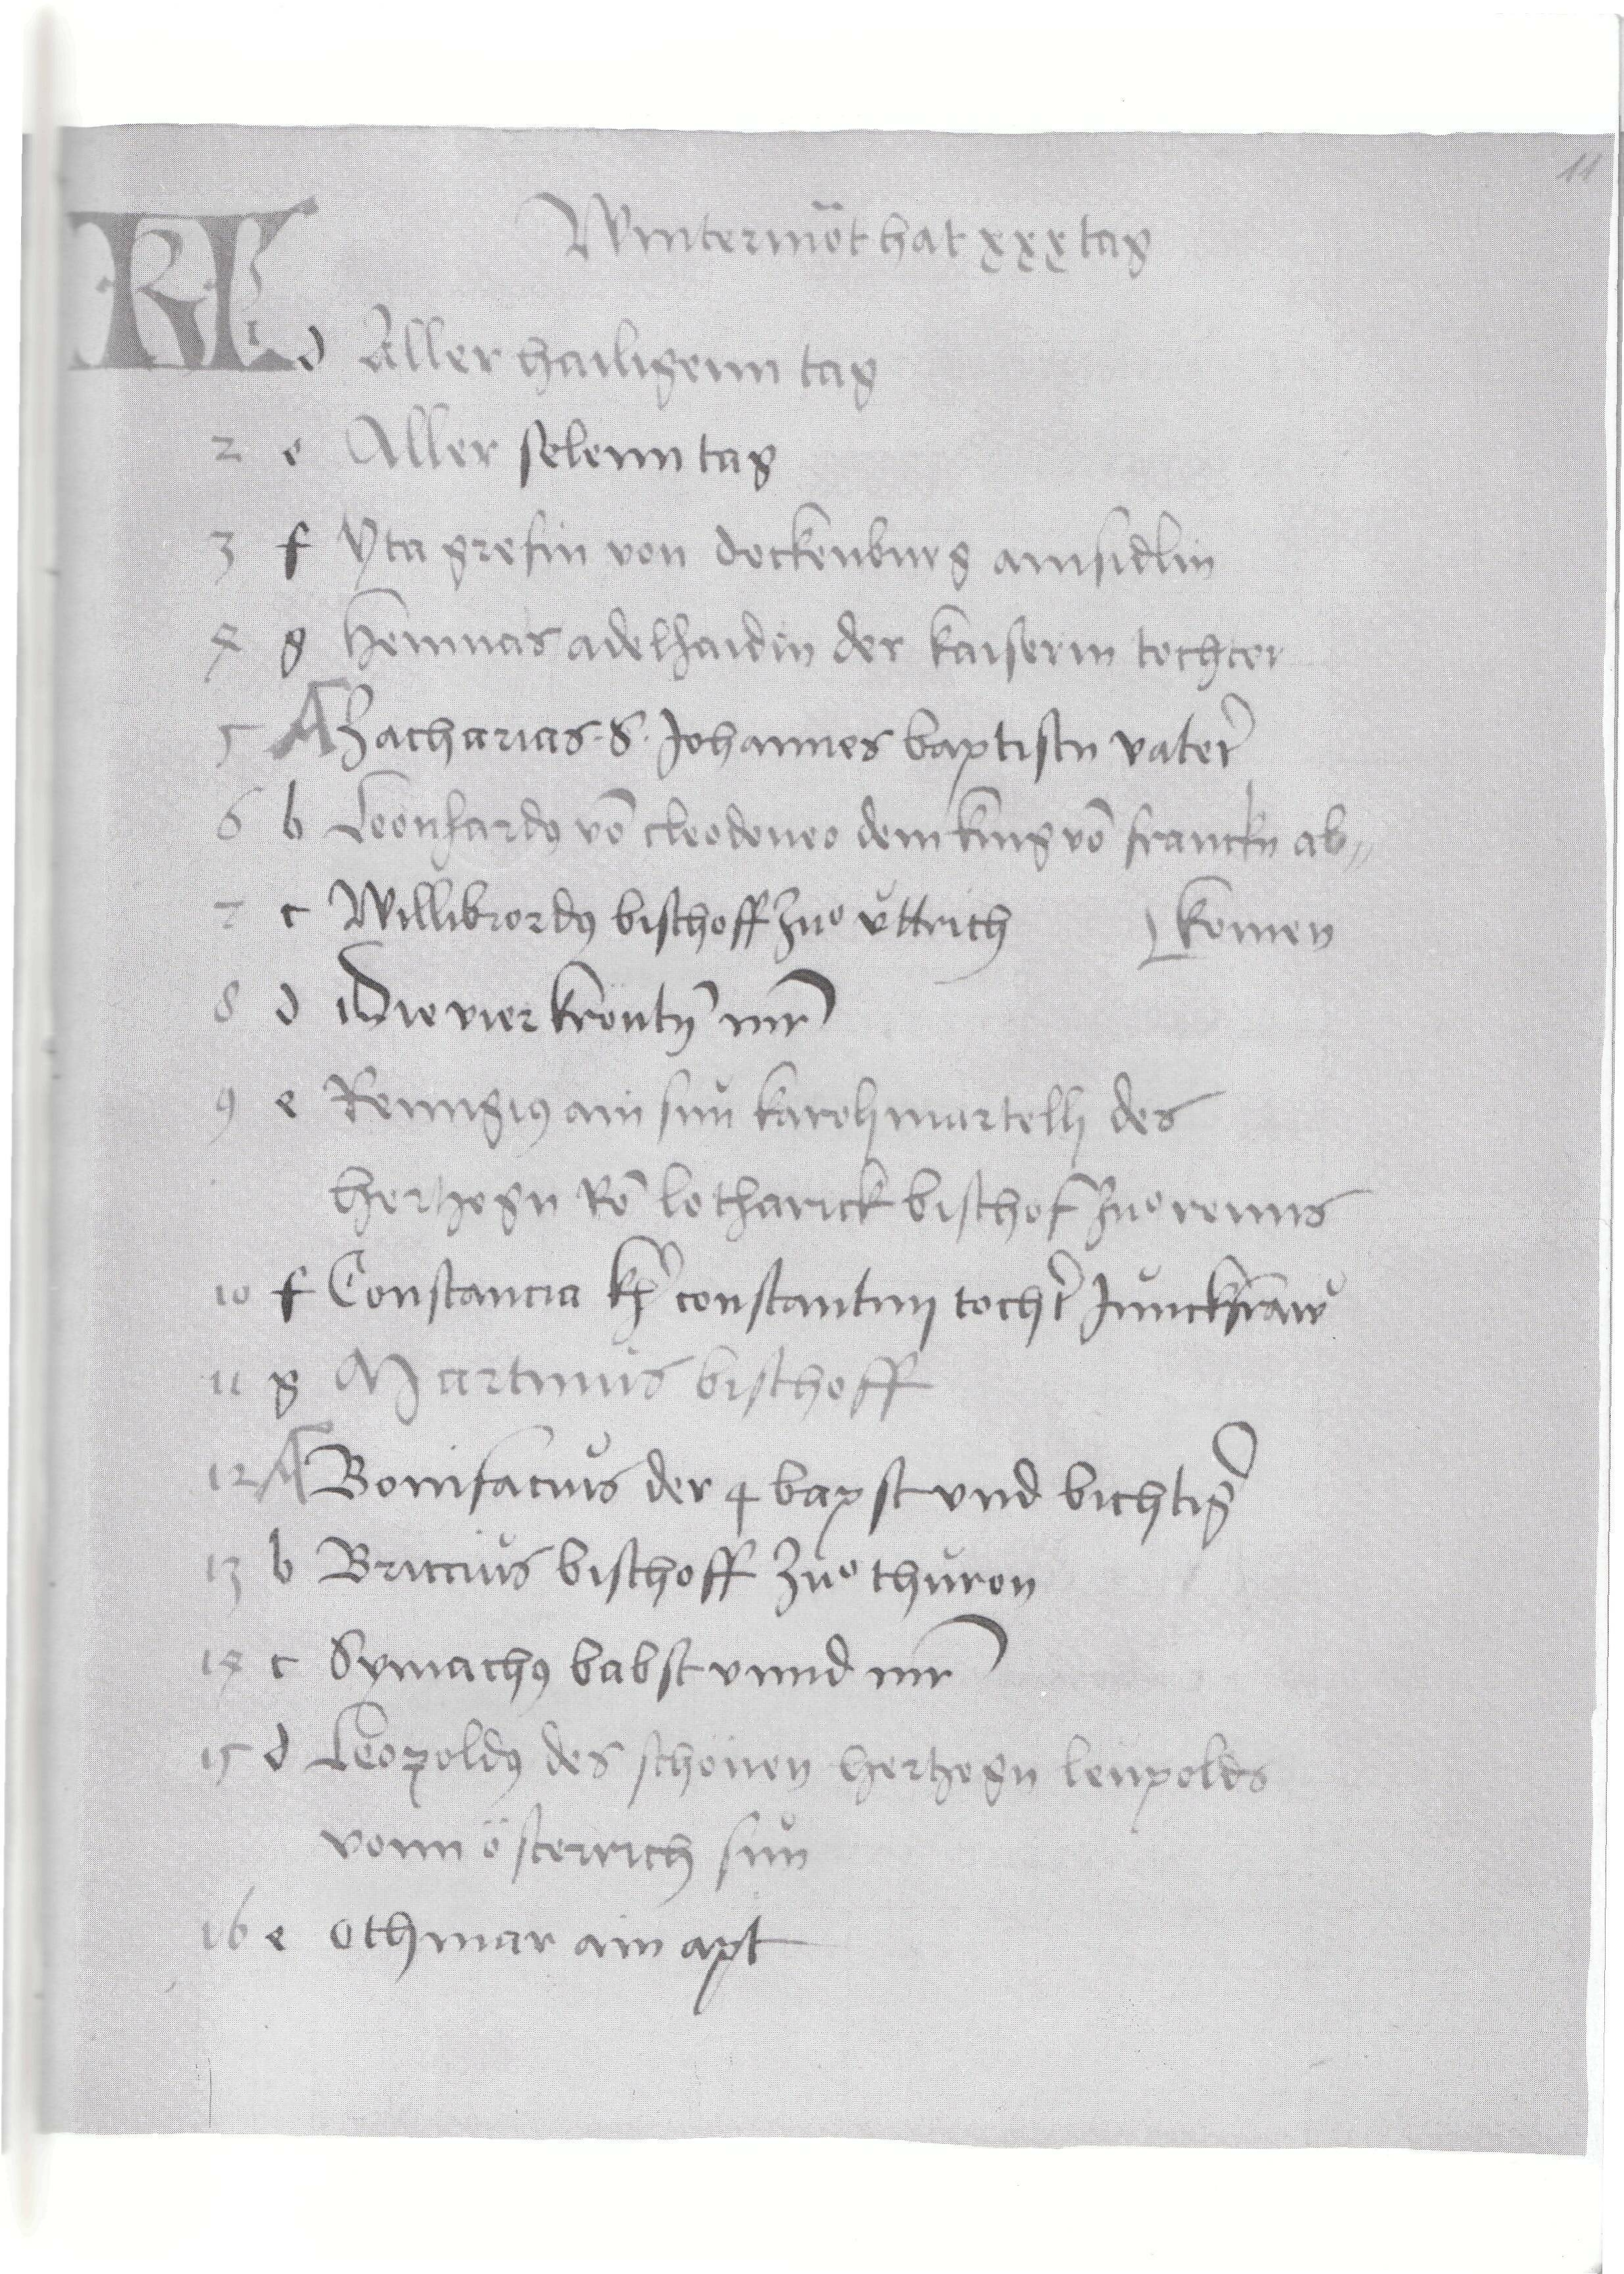 11
Wintermōt hat xxx tag
KL 1 d Aller hailigenn tag
2 e Aller selenn tag
3 f Yta grefin von dockenburg ainsidlin
4 g Hemmas adelhaidin der kaiserin tochter
5 A Zacharias S. Johannes baptistn vater
6 b Leonhardꝰ vō cleodoneo dem kung vō franckn ab„
7 c Willibrordꝰ bischoff zuͦ uttrich komen
8 d Die vier krontn̄ mr̄
9 e Remigiꝰ ain sun karoli martelli des
hertzogn vō lotharick bischof zuͦ remis
10 f Constancia constantinj tochr̄ Junckfraw
11 g Martinus bischoff
12 A Bonifacius der 4 bapst vnd bichtiḡ
13 b Briccius bischoff zuͦ thuron
14 c Symachꝰ babst vnnd mr̄
15 d Leopoldꝰ des schönen hertzogn leupolds
vonn österrich sun
16 e Othmar ain apt